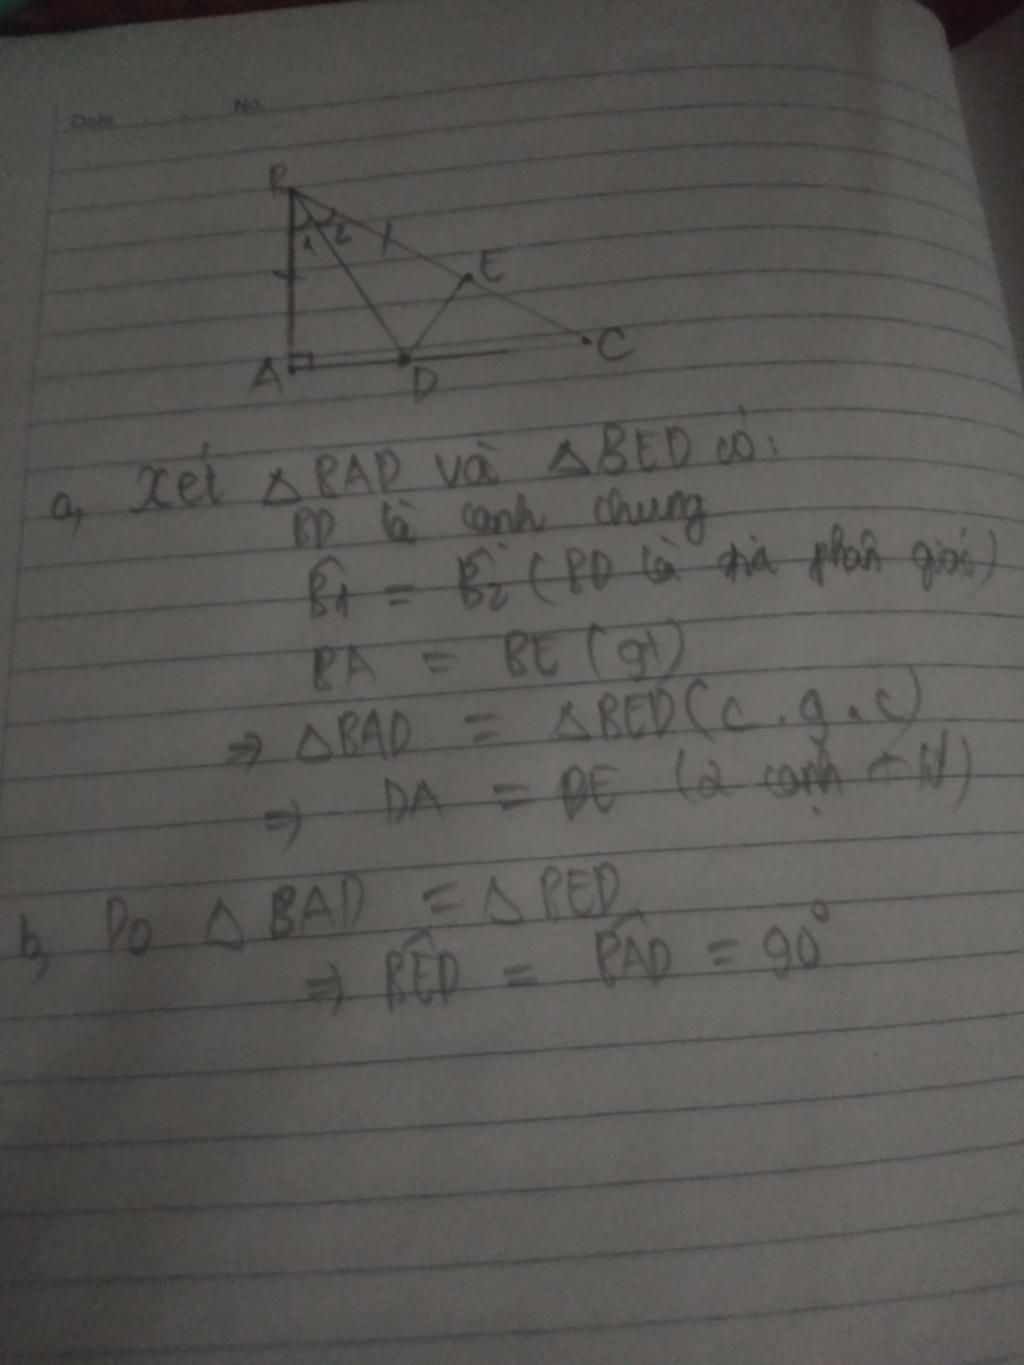 Date No.
B
1 2
E
A D C
a, Xét △BAD và △BED có:
BD là cạnh chung
B̂1 = B̂2 (BD là tia phân giác)
BA = BE (gt)
⇒ △BAD = △BED (c.g.c)
⇒ DA = DE (2 cạnh t.ứ)
b, Do △BAD = △BED
⇒ B̂ED = B̂AD = 90°